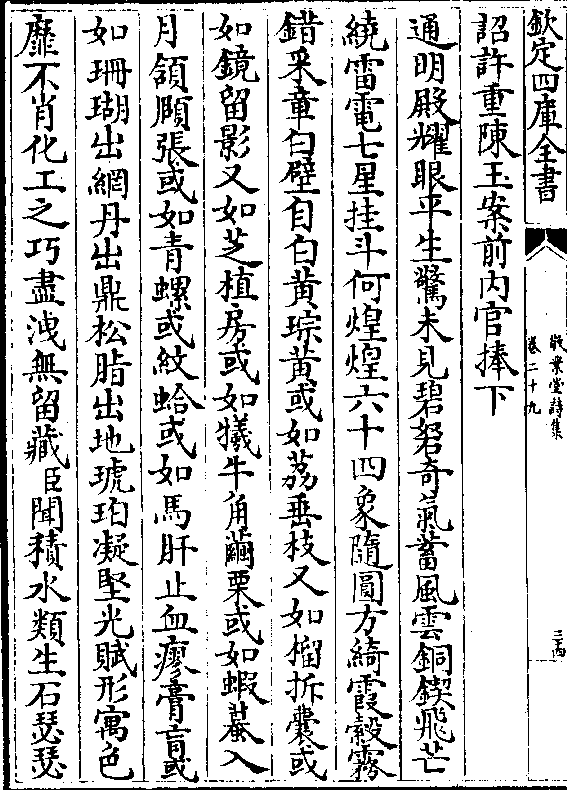 欽定四庫全書
敬業堂詩集
卷二十九
三古
詔許重陳玉案前内官捧下
通明殿耀眼平生驚未見碧砮奇氣蓄風雲銅鍥飛芒
繞雷電七星挂斗何煌煌六十四象隨圓方綺霞縠霧
錯采章白壁自白黄琮黄或如荔垂枝又如榴拆囊或
如鏡留影又如芝植房或如犧牛角繭栗或如蝦蟇入
月頷頤張或如青螺或紋蛤或如馬肝止血瘳膏肓或
如珊瑚出網丹出鼎松脂出地琥珀凝堅光賦形寓色
靡不肖化工之巧盡洩無留藏臣聞積水類生石瑟瑟